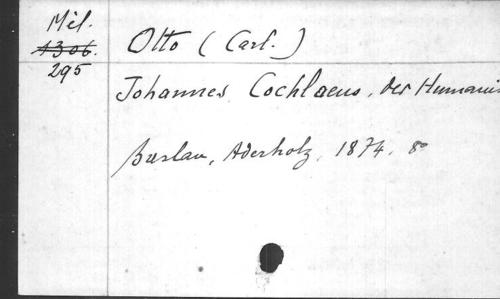 Mél.
1306.
295
Otto (Carl.)
Johannes Cochlaeus, der Humanis
Breslau, Aderholz, 1874. 8°